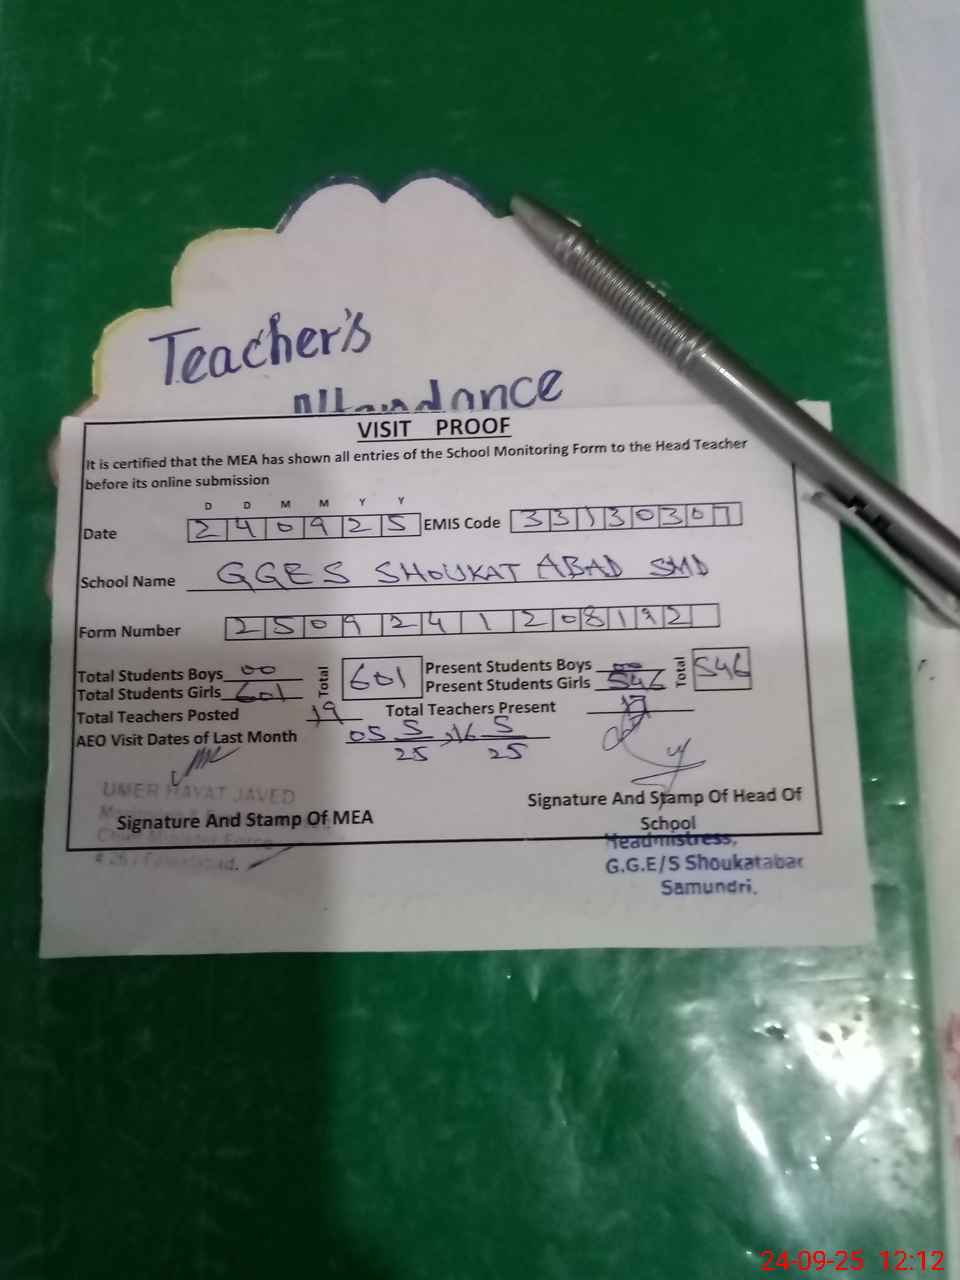 Teacher's
Attendance
VISIT PROOF
It is certified that the MEA has shown all entries of the School Monitoring Form to the Head Teacher
before its online submission
D D M M Y Y
Date 240925 EMIS Code 33130307
School Name GGES SHOUKAT ABAD SMD
Form Number 2509241208132
Total Students Boys 00 Total 601 Present Students Boys 00 Total 546
Total Students Girls 601 Present Students Girls 546
Total Teachers Posted 19 Total Teachers Present 17
AEO Visit Dates of Last Month 05 5/25, 16 5/25
UMER HAYAT JAVED
Signature And Stamp Of MEA
Signature And Stamp Of Head Of
School
Headmistress,
G.G.E/S Shoukatabad
Samundri.
24-09-25 12:12